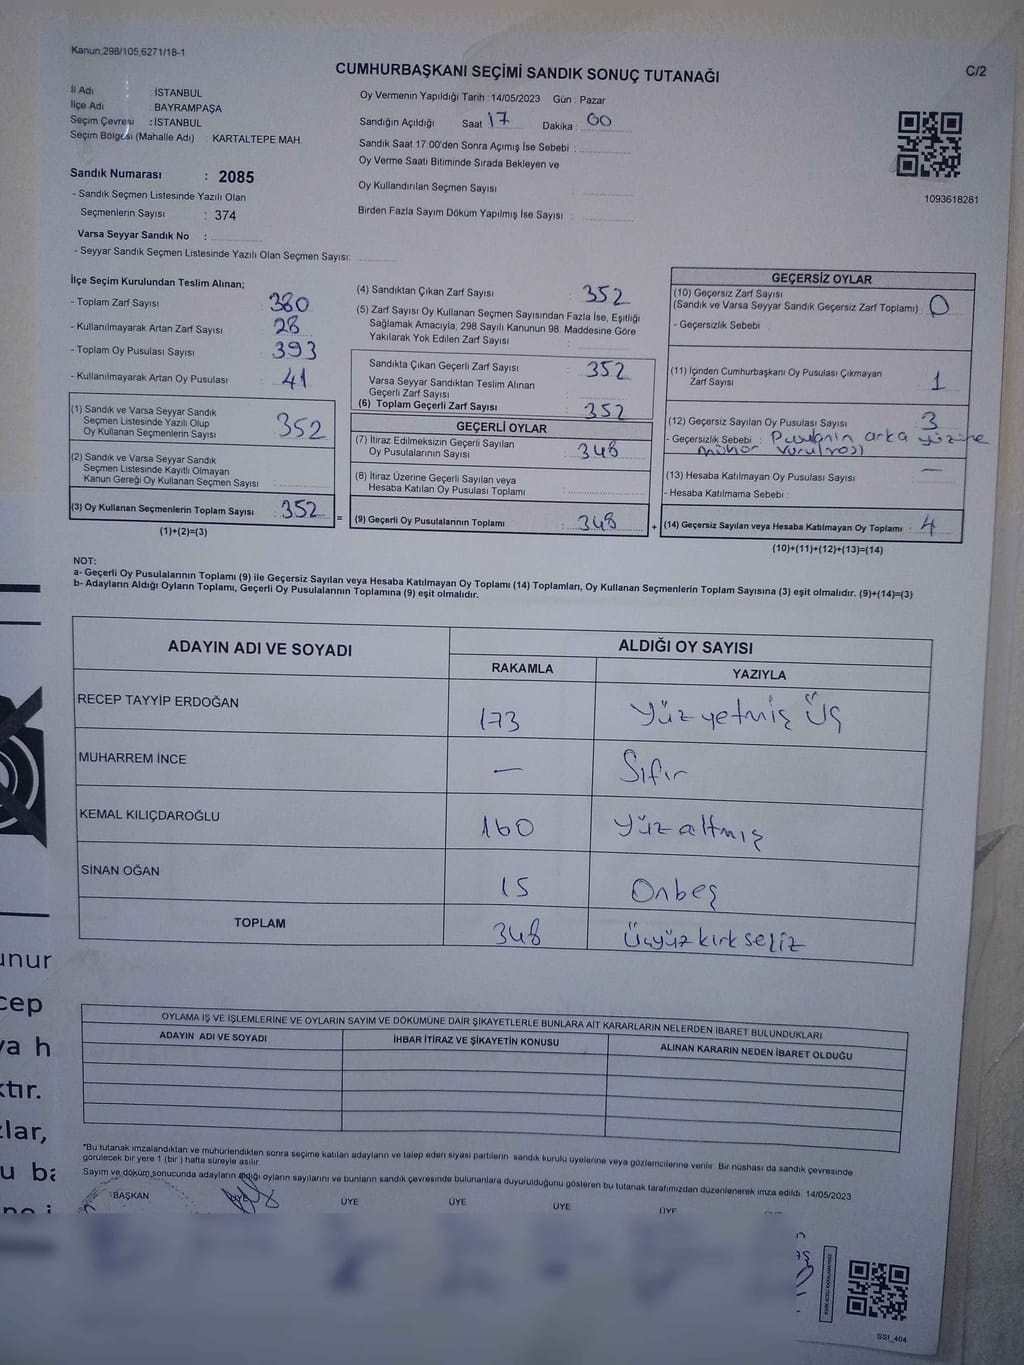 Kanun;298/105,6271/18-1
CUMHURBAŞKANI SEÇİMİ SANDIK SONUÇ TUTANAĞI
C/2
İl Adı : İSTANBUL
İlçe Adı : BAYRAMPAŞA
Seçim Çevresi : İSTANBUL
Seçim Bölgesi (Mahalle Adı) : KARTALTEPE MAH.
Sandık Numarası : 2085
- Sandık Seçmen Listesinde Yazılı Olan
Seçmenlerin Sayısı : 374
Varsa Seyyar Sandık No :
- Seyyar Sandık Seçmen Listesinde Yazılı Olan Seçmen Sayısı:
Oy Vermenin Yapıldığı Tarih : 14/05/2023 Gün : Pazar
Sandığın Açıldığı Saat 17 Dakika : 00
Sandık Saat 17.00'den Sonra Açımış İse Sebebi :
Oy Verme Saati Bitiminde Sırada Bekleyen ve
Oy Kullandırılan Seçmen Sayısı :
Birden Fazla Sayım Döküm Yapılmış İse Sayısı :
1093618281
İlçe Seçim Kurulundan Teslim Alınan;
- Toplam Zarf Sayısı : 380
- Kullanılmayarak Artan Zarf Sayısı : 28
- Toplam Oy Pusulası Sayısı : 393
- Kullanılmayarak Artan Oy Pusulası : 41
(1) Sandık ve Varsa Seyyar Sandık
Seçmen Listesinde Yazılı Olup
Oy Kullanan Seçmenlerin Sayısı : 352
(2) Sandık ve Varsa Seyyar Sandık
Seçmen Listesinde Kayıtlı Olmayan
Kanun Gereği Oy Kullanan Seçmen Sayısı :
(3) Oy Kullanan Seçmenlerin Toplam Sayısı : 352
(1)+(2)=(3)
=
(4) Sandıktan Çıkan Zarf Sayısı : 352
(5) Zarf Sayısı Oy Kullanan Seçmen Sayısından Fazla İse, Eşitliği
Sağlamak Amacıyla; 298 Sayılı Kanunun 98. Maddesine Göre
Yakılarak Yok Edilen Zarf Sayısı :
Sandıkta Çıkan Geçerli Zarf Sayısı : 352
Varsa Seyyar Sandıktan Teslim Alınan
Geçerli Zarf Sayısı :
(6) Toplam Geçerli Zarf Sayısı : 352
GEÇERLİ OYLAR
(7) İtiraz Edilmeksizin Geçerli Sayılan
Oy Pusulalarının Sayısı : 348
(8) İtiraz Üzerine Geçerli Sayılan veya
Hesaba Katılan Oy Pusulası Toplamı :
(9) Geçerli Oy Pusulalarının Toplamı : 348
+
GEÇERSİZ OYLAR
(10) Geçersiz Zarf Sayısı
(Sandık ve Varsa Seyyar Sandık Geçersiz Zarf Toplamı) : 0
- Geçersizlik Sebebi :
(11) İçinden Cumhurbaşkanı Oy Pusulası Çıkmayan
Zarf Sayısı : 1
(12) Geçersiz Sayılan Oy Pusulası Sayısı : 3
- Geçersizlik Sebebi : Pusulanın arka yüzüne
mühür vurulması
(13) Hesaba Katılmayan Oy Pusulası Sayısı : —
- Hesaba Katılmama Sebebi :
(14) Geçersiz Sayılan veya Hesaba Katılmayan Oy Toplamı : 4
(10)+(11)+(12)+(13)=(14)
NOT:
a- Geçerli Oy Pusulalarının Toplamı (9) ile Geçersiz Sayılan veya Hesaba Katılmayan Oy Toplamı (14) Toplamları, Oy Kullanan Seçmenlerin Toplam Sayısına (3) eşit olmalıdır. (9)+(14)=(3)
b- Adayların Aldığı Oyların Toplamı, Geçerli Oy Pusulalarının Toplamına (9) eşit olmalıdır.
ADAYIN ADI VE SOYADI
ALDIĞI OY SAYISI
RAKAMLA YAZIYLA
RECEP TAYYİP ERDOĞAN 173 Yüz yetmiş Üç
MUHARREM İNCE — Sıfır
KEMAL KILIÇDAROĞLU 160 Yüz altmış
SİNAN OĞAN 15 Onbeş
TOPLAM 348 Üçyüz kırk sekiz
OYLAMA İŞ VE İŞLEMLERİNE VE OYLARIN SAYIM VE DÖKÜMÜNE DAİR ŞİKAYETLERLE BUNLARA AİT KARARLARIN NELERDEN İBARET BULUNDUKLARI
ADAYIN ADI VE SOYADI İHBAR İTİRAZ VE ŞİKAYETİN KONUSU ALINAN KARARIN NEDEN İBARET OLDUĞU
*Bu tutanak imzalandıktan ve mühürlendikten sonra seçime katılan adayların ve talep eden siyasi partilerin sandık kurulu üyelerine veya gözlemcilerine verilir. Bir nüshası da sandık çevresinde
görülecek bir yere 1 (bir ) hafta süreyle asılır.
Sayım ve döküm sonucunda adayların aldığı oyların sayılarını ve bunların sandık çevresinde bulunanlara duyurulduğunu gösteren bu tutanak tarafımızdan düzenlenerek imza edildi. 14/05/2023
BAŞKAN ÜYE ÜYE ÜYE ÜYE ÜYE
SSI_404
unur
cep
ya h
ktır.
zlar,
u ba